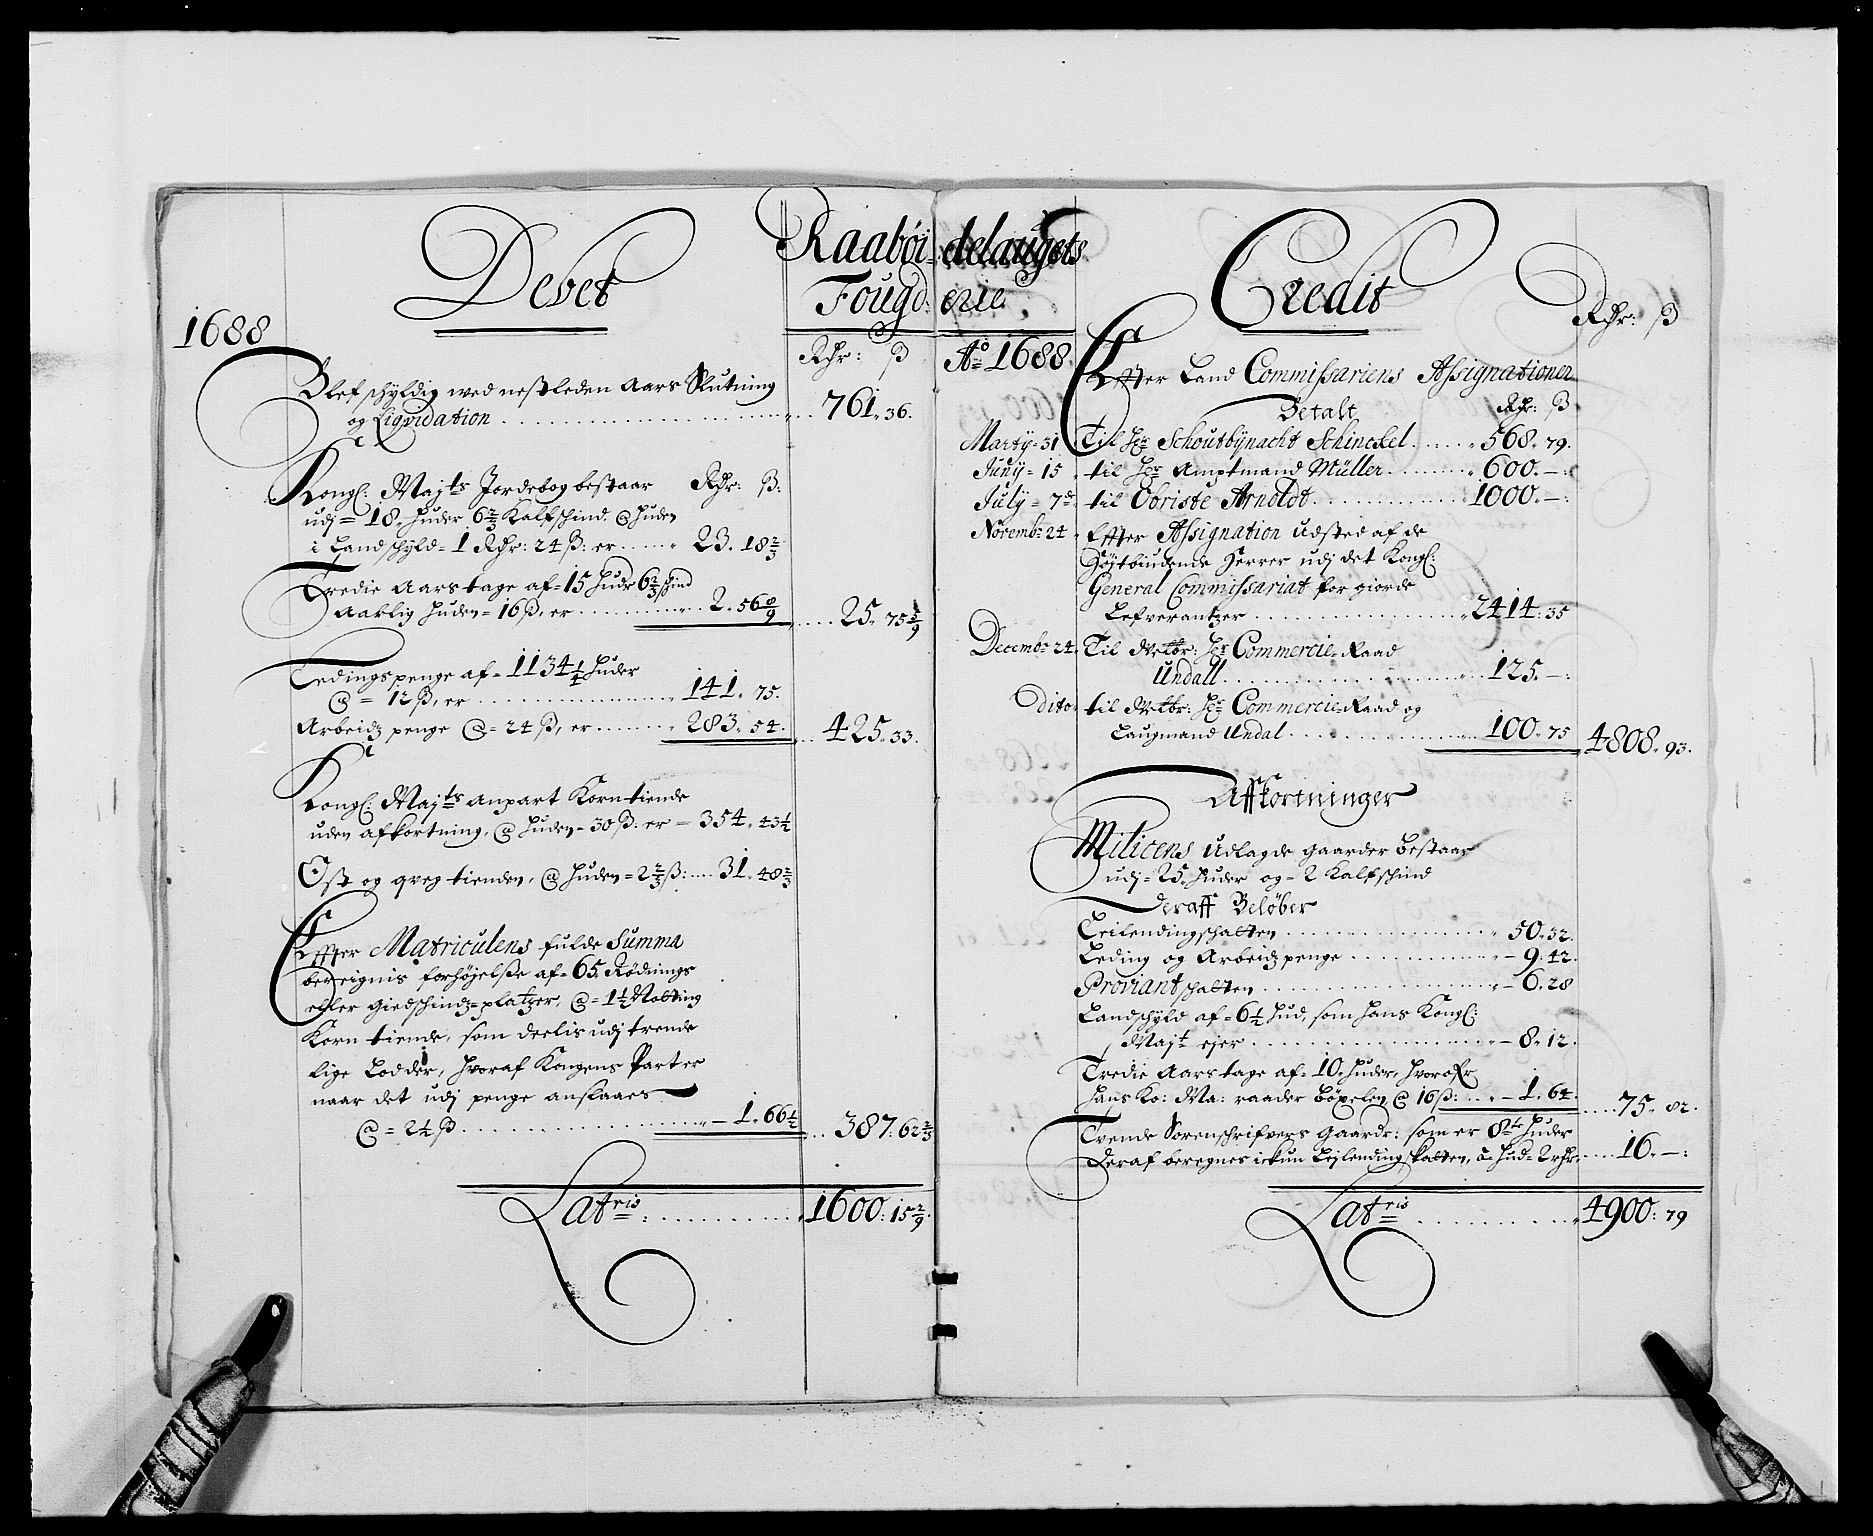 Raabøi-
Fougd:
Debet
1688
Rdr: ß
Blef schyldig wed nestleden Aars Slutning
og Liqvidation 761. 36.
Kongl: Majts Jordebog bestaar Rdr: ß:
udj= 18. Huder 6 2/3 Kalfschind. @ Huden
i Landschyld= 1 Rdr: 24 ß: er 23. 18 2/3
Tredie Aarstage af= 15 Hudr 6 2/3 schind
Aarlig Huden= 16 ß, er 2. 56 8/9 25. 75 5/9
Ledingspenge af= 1134 1/4 Huder
@ = 12 ß, er 141. 75.
Arbeidz penge @= 24 ß, er 283. 54. 425. 33.
Kongl: Majts anpart Korn tiende
uden afkortning, @ Huden= 30 ß: er = 354. 43 1/2
Ost og qveg tienden, @ Huden= 2 2/3 ß: 31. 48 2/3
Effter Matriculens fulde Summa
beregnis forhøjelsse af= 65. Rødnings
eller Giedschindz=platzer, @= 1 1/2 Setting
Korn tiende, som deelis udj trende
lige Lodder, hvoraf Kongens Part er
naar det udj penge anslaaes
@= 24 ß 1. 66 1/2 387: 62 2/3
Latris 1600: 15 2/9
delaugets
erie
Credit
Rdr: ß
Ao 1688.
Effter Land Commissariens Assignationer
Betalt Rdr: ß
Marty= 31 Til Hr Schoutbynacht Schinckel 568. 79.
Juny= 15 til Hr Amptmand Müller 600. –:
July= 7de til Obriste Arnoldt 1000. –:
Novemb= 24 Effter Assignation udsted af de
Høytbiudende Herrer udj det Kongl:
General Commissariat for giorde
Lefverantzer 2414. 35
Decemb= 24. Til Hr Commercie-Raad
Undall 125. –:
dito til Hr Commercie Raad og
Laugmand Undal 100. 75 4808. 93.
Affkortninger
Militens udlagde gaarder bestaar
udj= 25. Huder og= 2 Kalfschind
deraff Beløber
Leilendingschatten 50. 32.
Leding og Arbeidz penge 9. 42.
Proviantschatten 6. 28
Landschyld af= 6 1/2 Hud, som Hans Kongl:
Majt ejer 8. 12.
Tredie Aarstage af= 10. Huder, hvorofr
Hans Ko: Ma: raader Bøxelen @ 16 ß: 1. 64. 75. 82.
Tvende Sorenschrifvers Gaardr: som er 8 Huder
Deraf beregnes ickun Leilendingskatten, a Hud= 2 rdr. 16. –:
Latris 4900: 79